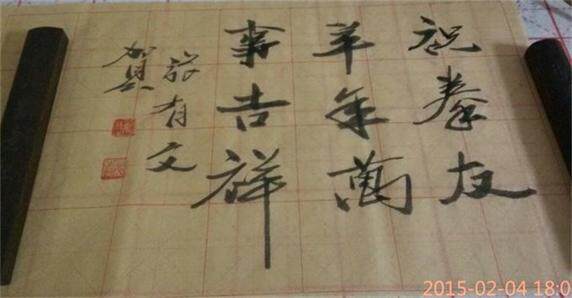 祝拳友
羊年萬
事吉祥
敬有文
贺
2015-02-04 18:0